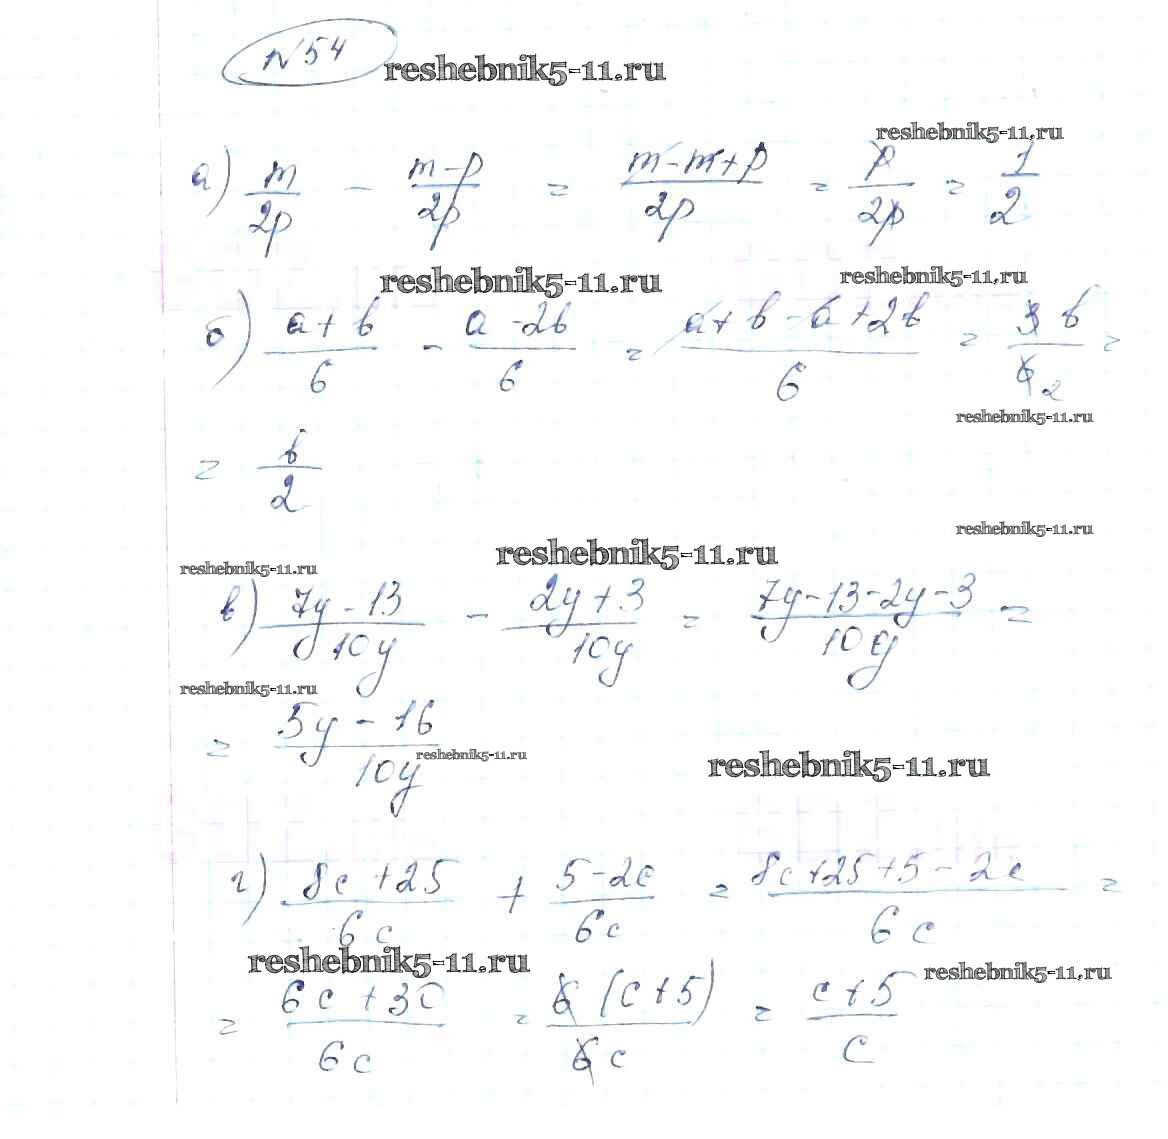 N54
reshebnik5-11.ru
reshebnik5-11.ru
а) m/2p - (m-p)/2p = (m-m+p)/2p = p/2p = 1/2
reshebnik5-11.ru
reshebnik5-11.ru
б) (a+b)/6 - (a-2b)/6 = (a+b-a+2b)/6 = 3b/6 2 =
reshebnik5-11.ru
= b/2
reshebnik5-11.ru
reshebnik5-11.ru
reshebnik5-11.ru
в) (7y-13)/10y - (2y+3)/10y = (7y-13-2y-3)/10y =
reshebnik5-11.ru
= (5y-16)/10y
reshebnik5-11.ru
reshebnik5-11.ru
г) (8c+25)/6c + (5-2c)/6c = (8c+25+5-2c)/6c =
reshebnik5-11.ru
reshebnik5-11.ru
= (6c+30)/6c = 6(c+5)/6c = (c+5)/c